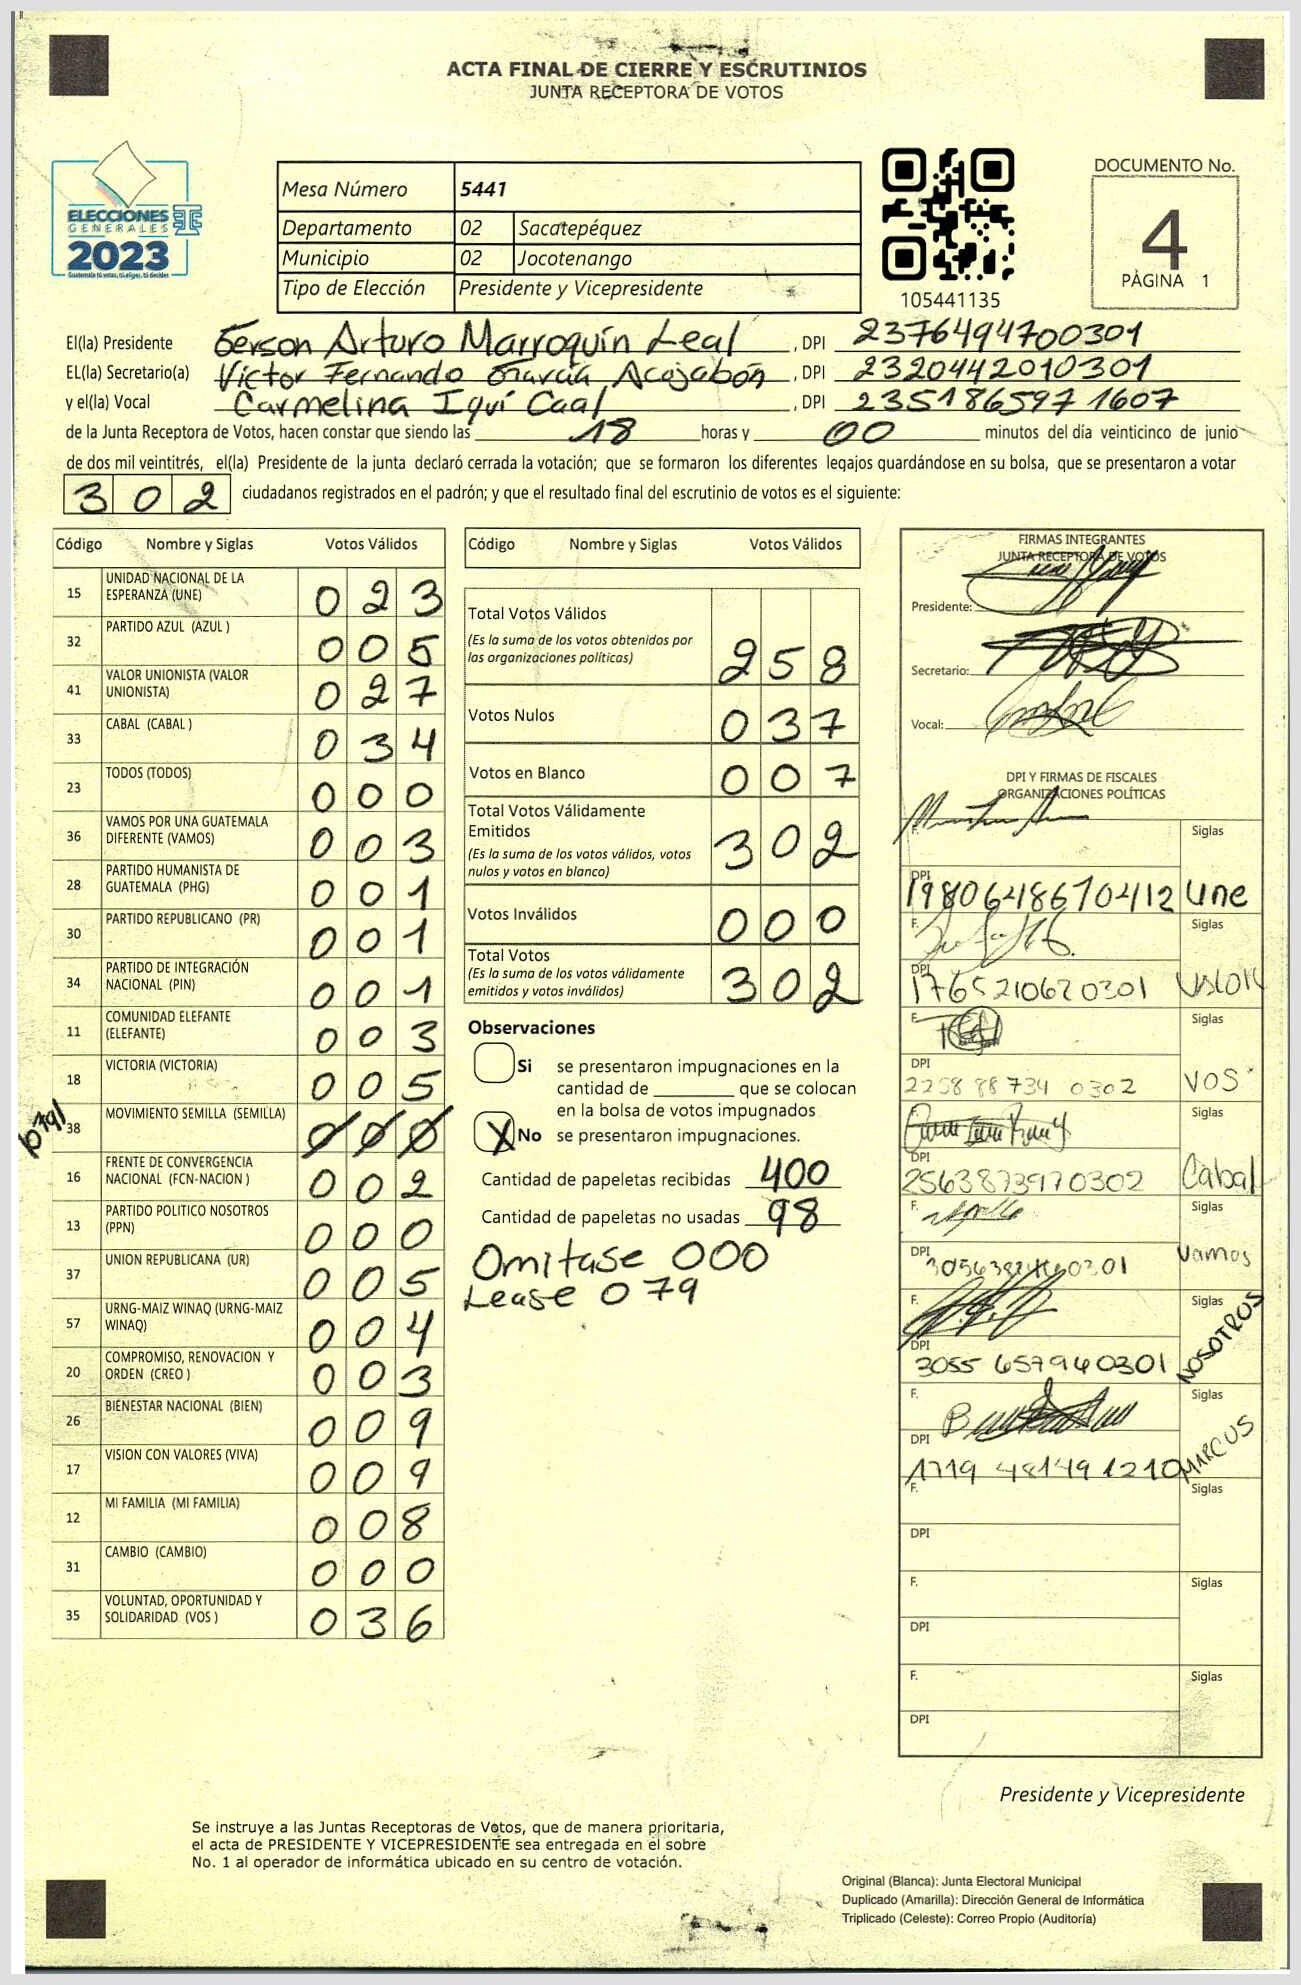 ACTA FINAL DE CIERRE Y ESCRUTINIOS
JUNTA RECEPTORA DE VOTOS
ELECCIONES
GENERALES
2023
Guatemala tú votas, tú eliges, tú decides
Mesa Número 5441
Departamento 02 Sacatepéquez
Municipio 02 Jocotenango
Tipo de Elección Presidente y Vicepresidente
105441135
DOCUMENTO No.
4
PÀGINA 1
El(la) Presidente Gerson Arturo Marroquín Leal , DPI 2376494700301
EL(la) Secretario(a) Victor Fernando García Acojabón , DPI 2320442010301
y el(la) Vocal Carmelina Iquí Caal , DPI 2351865971607
de la Junta Receptora de Votos, hacen constar que siendo las 18 horas y 00 minutos del día veinticinco de junio
de dos mil veintitrés, el(la) Presidente de la junta declaró cerrada la votación; que se formaron los diferentes legajos guardándose en su bolsa, que se presentaron a votar
302 ciudadanos registrados en el padrón; y que el resultado final del escrutinio de votos es el siguiente:
Código Nombre y Siglas Votos Válidos
15 UNIDAD NACIONAL DE LA ESPERANZA (UNE) 023
32 PARTIDO AZUL (AZUL ) 005
41 VALOR UNIONISTA (VALOR UNIONISTA) 027
33 CABAL (CABAL ) 034
23 TODOS (TODOS) 000
36 VAMOS POR UNA GUATEMALA DIFERENTE (VAMOS) 003
28 PARTIDO HUMANISTA DE GUATEMALA (PHG) 001
30 PARTIDO REPUBLICANO (PR) 001
34 PARTIDO DE INTEGRACIÓN NACIONAL (PIN) 001
11 COMUNIDAD ELEFANTE (ELEFANTE) 003
18 VICTORIA (VICTORIA) 005
38 MOVIMIENTO SEMILLA (SEMILLA) 000
079
16 FRENTE DE CONVERGENCIA NACIONAL (FCN-NACION ) 002
13 PARTIDO POLITICO NOSOTROS (PPN) 000
37 UNION REPUBLICANA (UR) 005
57 URNG-MAIZ WINAQ (URNG-MAIZ WINAQ) 004
20 COMPROMISO, RENOVACION Y ORDEN (CREO ) 003
26 BIENESTAR NACIONAL (BIEN) 009
17 VISION CON VALORES (VIVA) 009
12 MI FAMILIA (MI FAMILIA) 008
31 CAMBIO (CAMBIO) 000
35 VOLUNTAD, OPORTUNIDAD Y SOLIDARIDAD (VOS ) 036
Código Nombre y Siglas Votos Válidos
Total Votos Válidos 258
(Es la suma de los votos obtenidos por
las organizaciones políticas)
Votos Nulos 037
Votos en Blanco 007
Total Votos Válidamente
Emitidos 302
(Es la suma de los votos válidos, votos
nulos y votos en blanco)
Votos Inválidos 000
Total Votos 302
(Es la suma de los votos válidamente
emitidos y votos inválidos)
Observaciones
Si se presentaron impugnaciones en la
cantidad de ________ que se colocan
en la bolsa de votos impugnados
X No se presentaron impugnaciones.
Cantidad de papeletas recibidas 400
Cantidad de papeletas no usadas 98
Omitase 000
Lease 079
FIRMAS INTEGRANTES
JUNTA RECEPTORA DE VOTOS
Presidente:
Secretario:
Vocal:
DPI Y FIRMAS DE FISCALES
ORGANIZACIONES POLÍTICAS
F. Siglas
DPI 1980648670412 Une
F. Siglas
DPI 1765210620301 VALOR
F. Siglas
DPI 2258 88734 0302 VOS
F. Siglas
DPI 2563873970302 Cabal
F. Siglas
DPI Vamos
F. Siglas
DPI 3055 657940301 NOSOTROS
F. Siglas
DPI 1719 48149 1210 MARCUS
F. Siglas
DPI
F. Siglas
DPI
F. Siglas
DPI
Presidente y Vicepresidente
Se instruye a las Juntas Receptoras de Votos, que de manera prioritaria,
el acta de PRESIDENTE Y VICEPRESIDENTE sea entregada en el sobre
No. 1 al operador de informática ubicado en su centro de votación.
Original (Blanca): Junta Electoral Municipal
Duplicado (Amarilla): Dirección General de Informática
Triplicado (Celeste): Correo Propio (Auditoría)